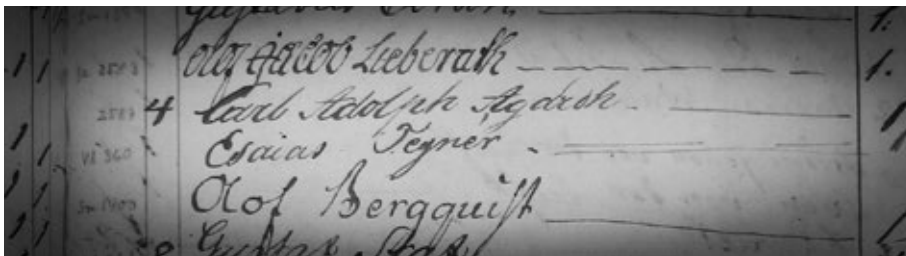 Olof Jacob Lieberath 1.
2587 4 Carl Adolph Agardh
Esaias Tegner
Vl 360
Olof Bergquist
Gustaf